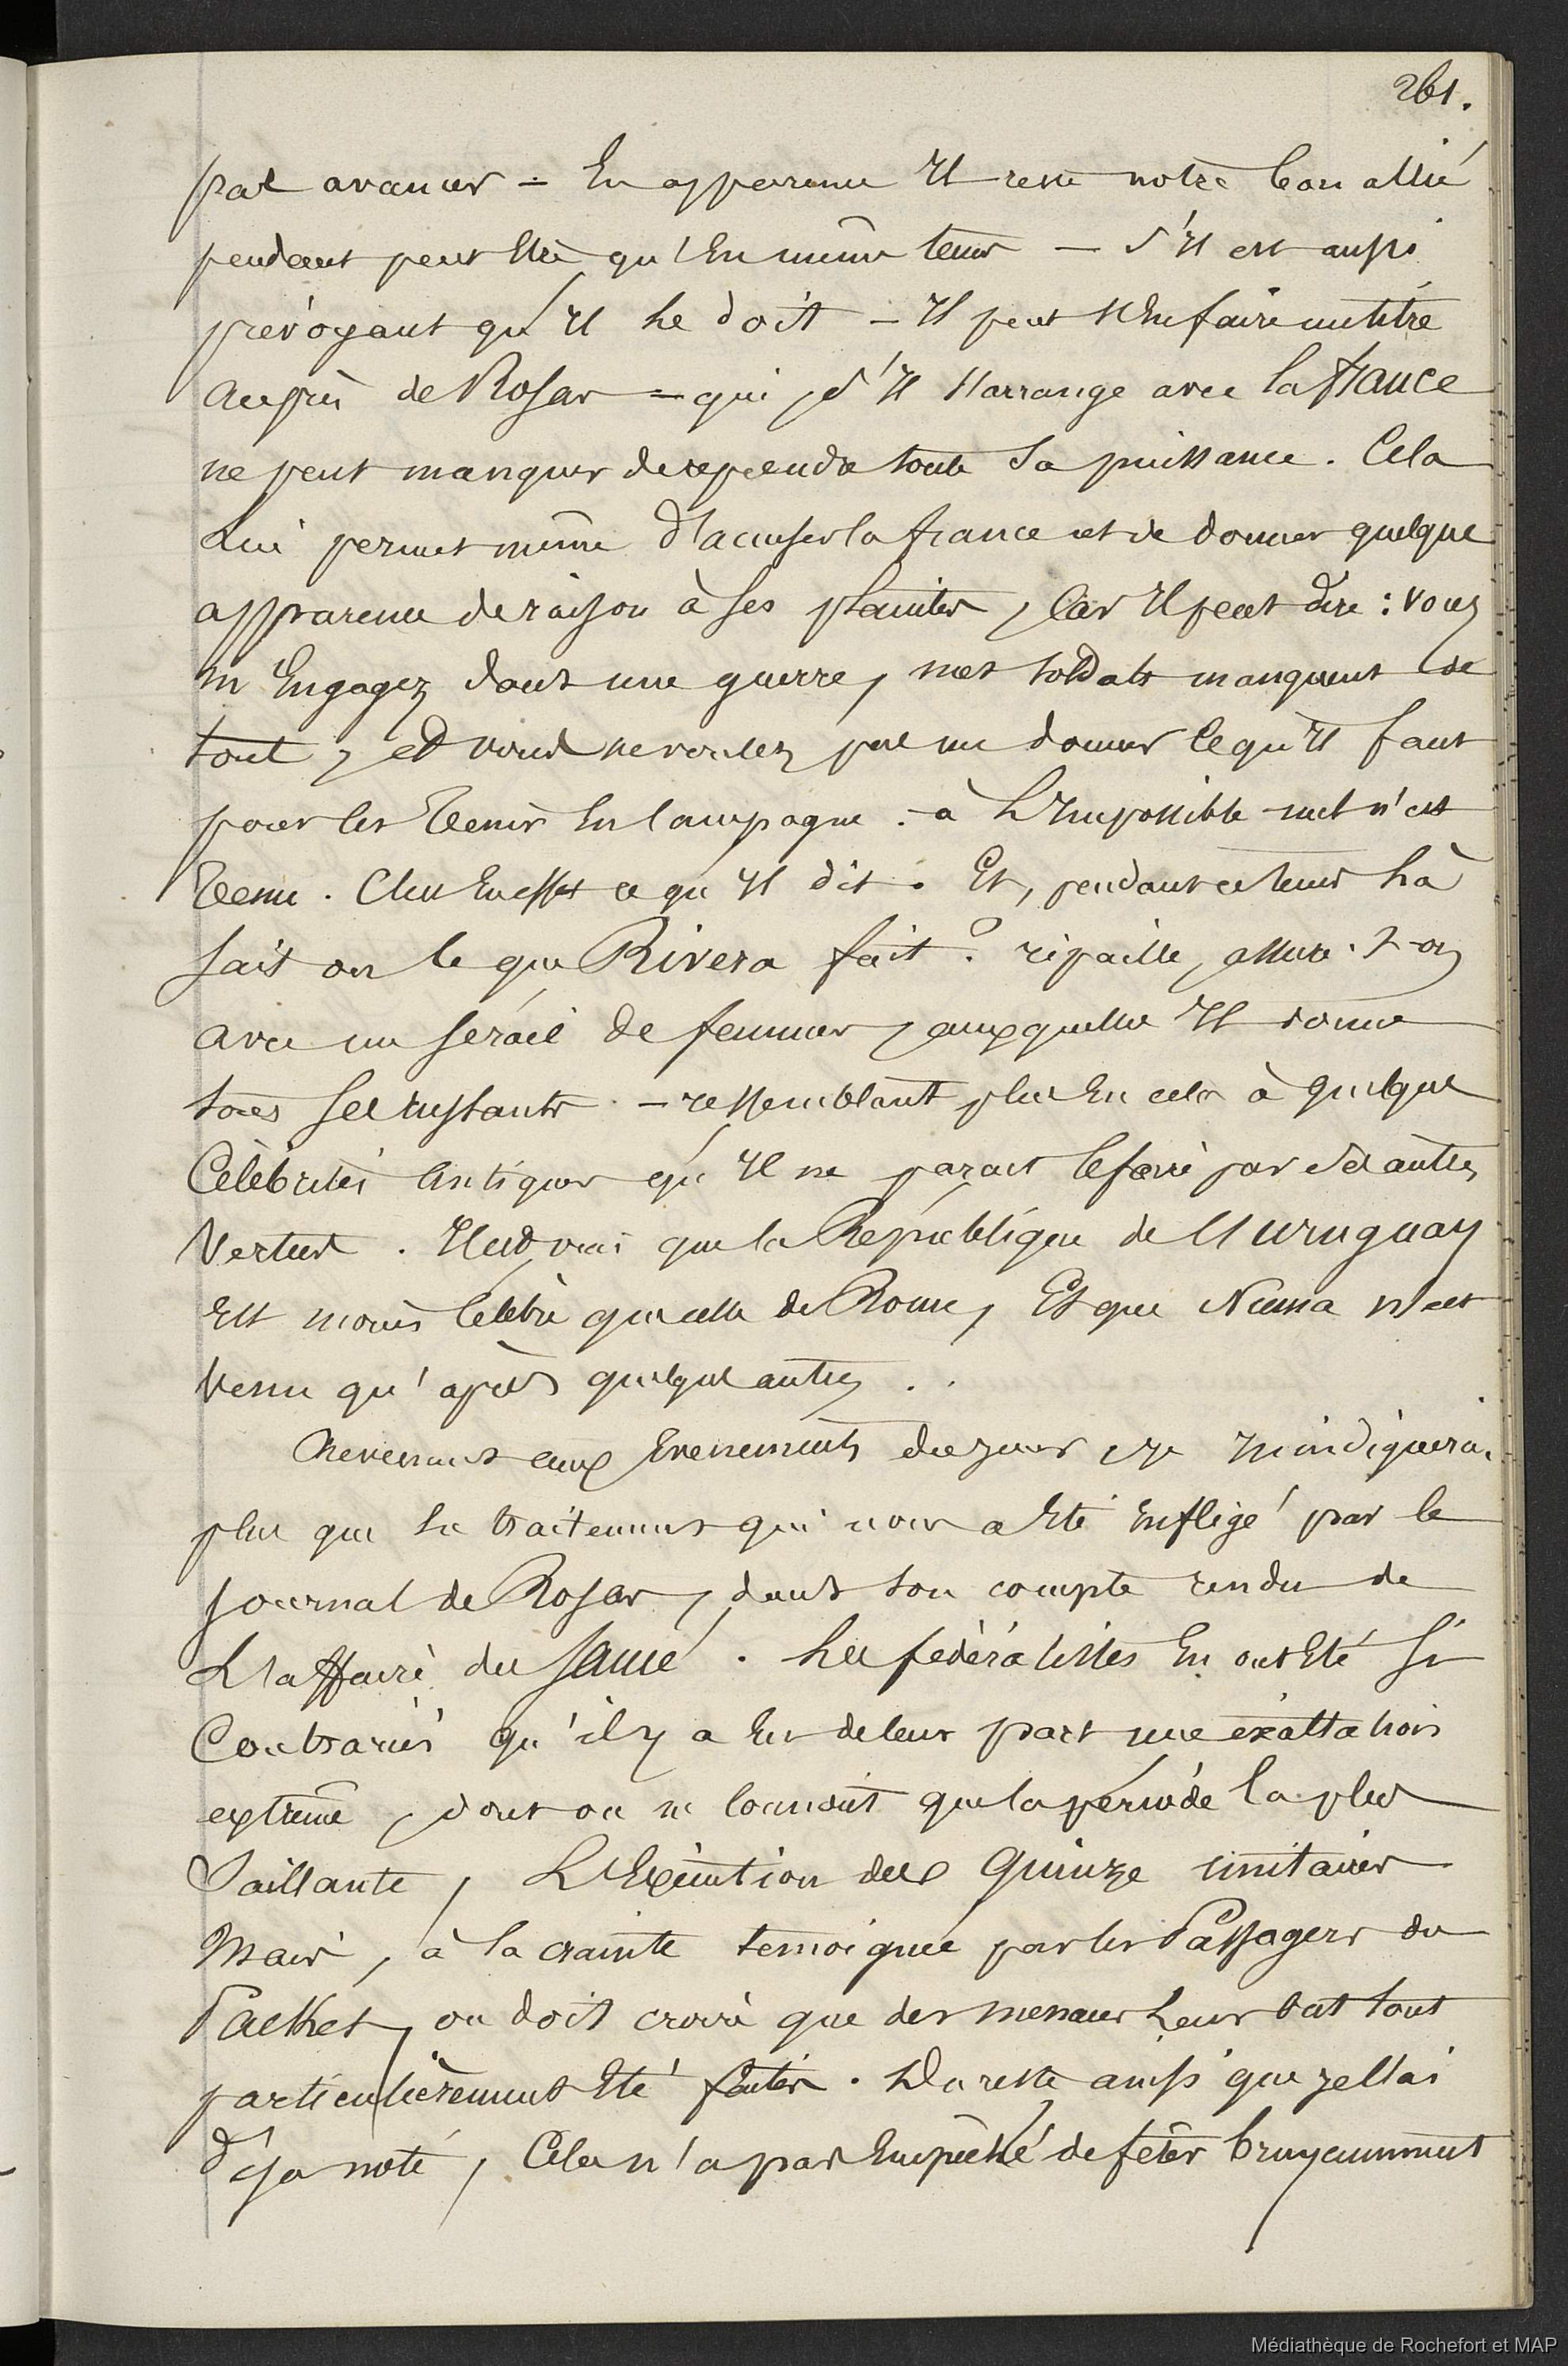 261.
pas avancer = En apparence Il reste notre bon allié
pendant peut Etre qu'En même tems — s'Il est aussi
prévoyant qu'Il le doit — Il peut s'En faire un titre
auprès de Rosas = qui, s'Il s'arrange avec la france
ne peut manquer de reprendre toute sa puissance. Cela
Lui permet même d'accuser la france et de donner quelque
apparence de raison à ses plaintes, car Il peut dire : vous
m'Engagez dans une guerre, mes soldats manquent de
tout, et vous ne voulez pas me donner ce qu'Il faut
pour les tenir En campagne : à L'Impossible nul n'est
tenu. C'est En effet ce qu'Il dit. Et, pendant ce tems Là
sait on ce que Rivera fait ? ripaille, assure-t-on
avec un sérail de femmes, auxquelles Il donne
tous ses instants. — ressemblant plus En cela à quelques
Célébrités Antiques qu'Il ne parait le faire par d'autres
Vertus. Il est vrai que la République de l'Uruguay
Est moins célèbre que celle de Rome, Et que Numa n'est
venu qu'après quelques autres ..
Revenons aux Evenements du jour, je n'indiquerai
plus que Le traitement qui nous a Eté Infligé par le
journal de Rosas, dans son compte rendu de
L'affaire du Saucé. Les fédéralistes En ont Eté si
Contrariés qu'il y a Eu de leur part une exaltation
extrême, dont on ne connait que la période la plus
Saillante, L'Exécution des quinze unitaires
Mais, à la crainte temoignée par les Passagers du
Packet, on doit croire que des menaces Leur ont tout
particulièrement Eté faites. Du reste ainsi que je l'ai
déja noté, Cela n'a pas Empêché de fêter bruyamment
Médiathèque de Rochefort et MAP